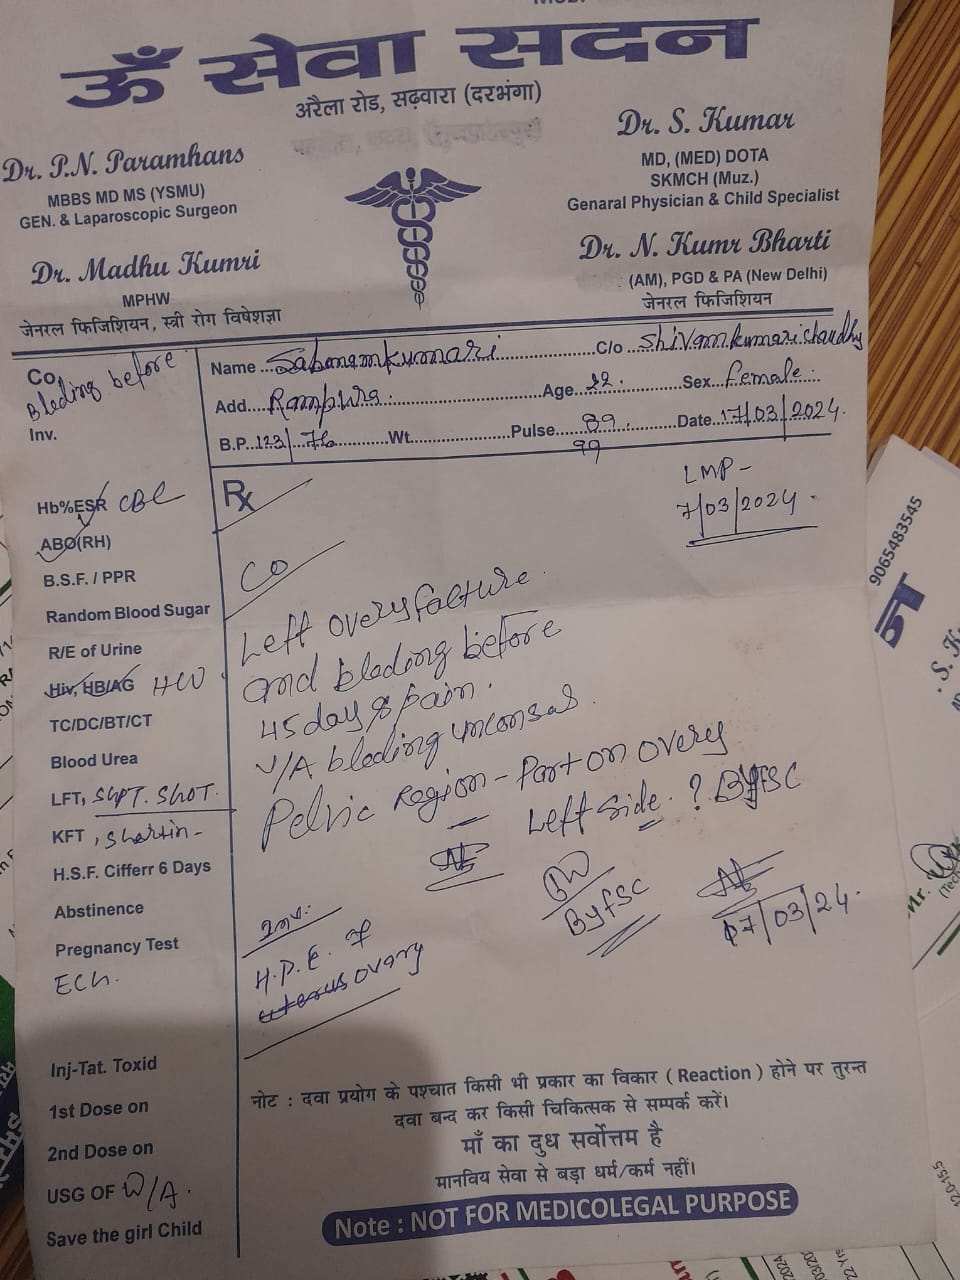 ॐ सेवा सदन
अरैला रोड, सढ़वारा (दरभंगा)
Dr. P.N. Paramhans
MBBS MD MS (YSMU)
GEN. & Laparoscopic Surgeon
Dr. Madhu Kumri
MPHW
जेनरल फिजिशियन, स्त्री रोग विषेशज्ञा
Dr. S. Kumar
MD, (MED) DOTA
SKMCH (Muz.)
Genaral Physician & Child Specialist
Dr. N. Kumr Bharti
(AM), PGD & PA (New Delhi)
जेनरल फिजिशियन
Co.
Bleding before
Inv.
Name ...Sabnamkumari...C/o ...Shivamkumarichaudhy
Add....Rampura....Age...22....Sex...female...
B.P...123/76...Wt....Pulse....89....Date..17/03/2024.
99
LMP-
7/03/2024.
Hb%ESR CBC
ABO(RH)
B.S.F. / PPR
Random Blood Sugar
R/E of Urine
Hiv, HB/AG HCV
TC/DC/BT/CT
Blood Urea
LFT, SGPT. SGOT.
KFT,
H.S.F. Cifferr 6 Days
Abstinence
Pregnancy Test
ECG.
Inj-Tat. Toxid
1st Dose on
2nd Dose on
USG OF W/A.
Save the girl Child
Rx
CO
Left overy facture
and bleding before
45 day & pain.
V/A bleding
Pelvic Region - Part on overy
Left side. ?
17/03/24.
Inv:-
H.P.E. of
uterus ovary
नोट : दवा प्रयोग के पश्चात किसी भी प्रकार का विकार ( Reaction ) होने पर तुरन्त
दवा बन्द कर किसी चिकित्सक से सम्पर्क करें।
माँ का दुध सर्वोत्तम है
मानविय सेवा से बड़ा धर्म/कर्म नहीं।
Note : NOT FOR MEDICOLEGAL PURPOSE
9065483545